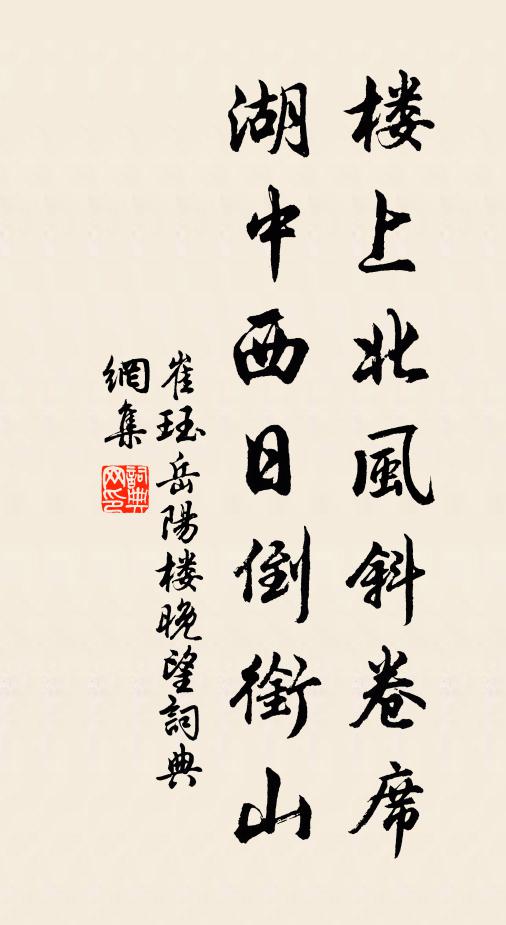 楼上北風斜卷席
湖中西日倒銜山
崔珏岳陽楼晚望詞典
網集
詞典网印